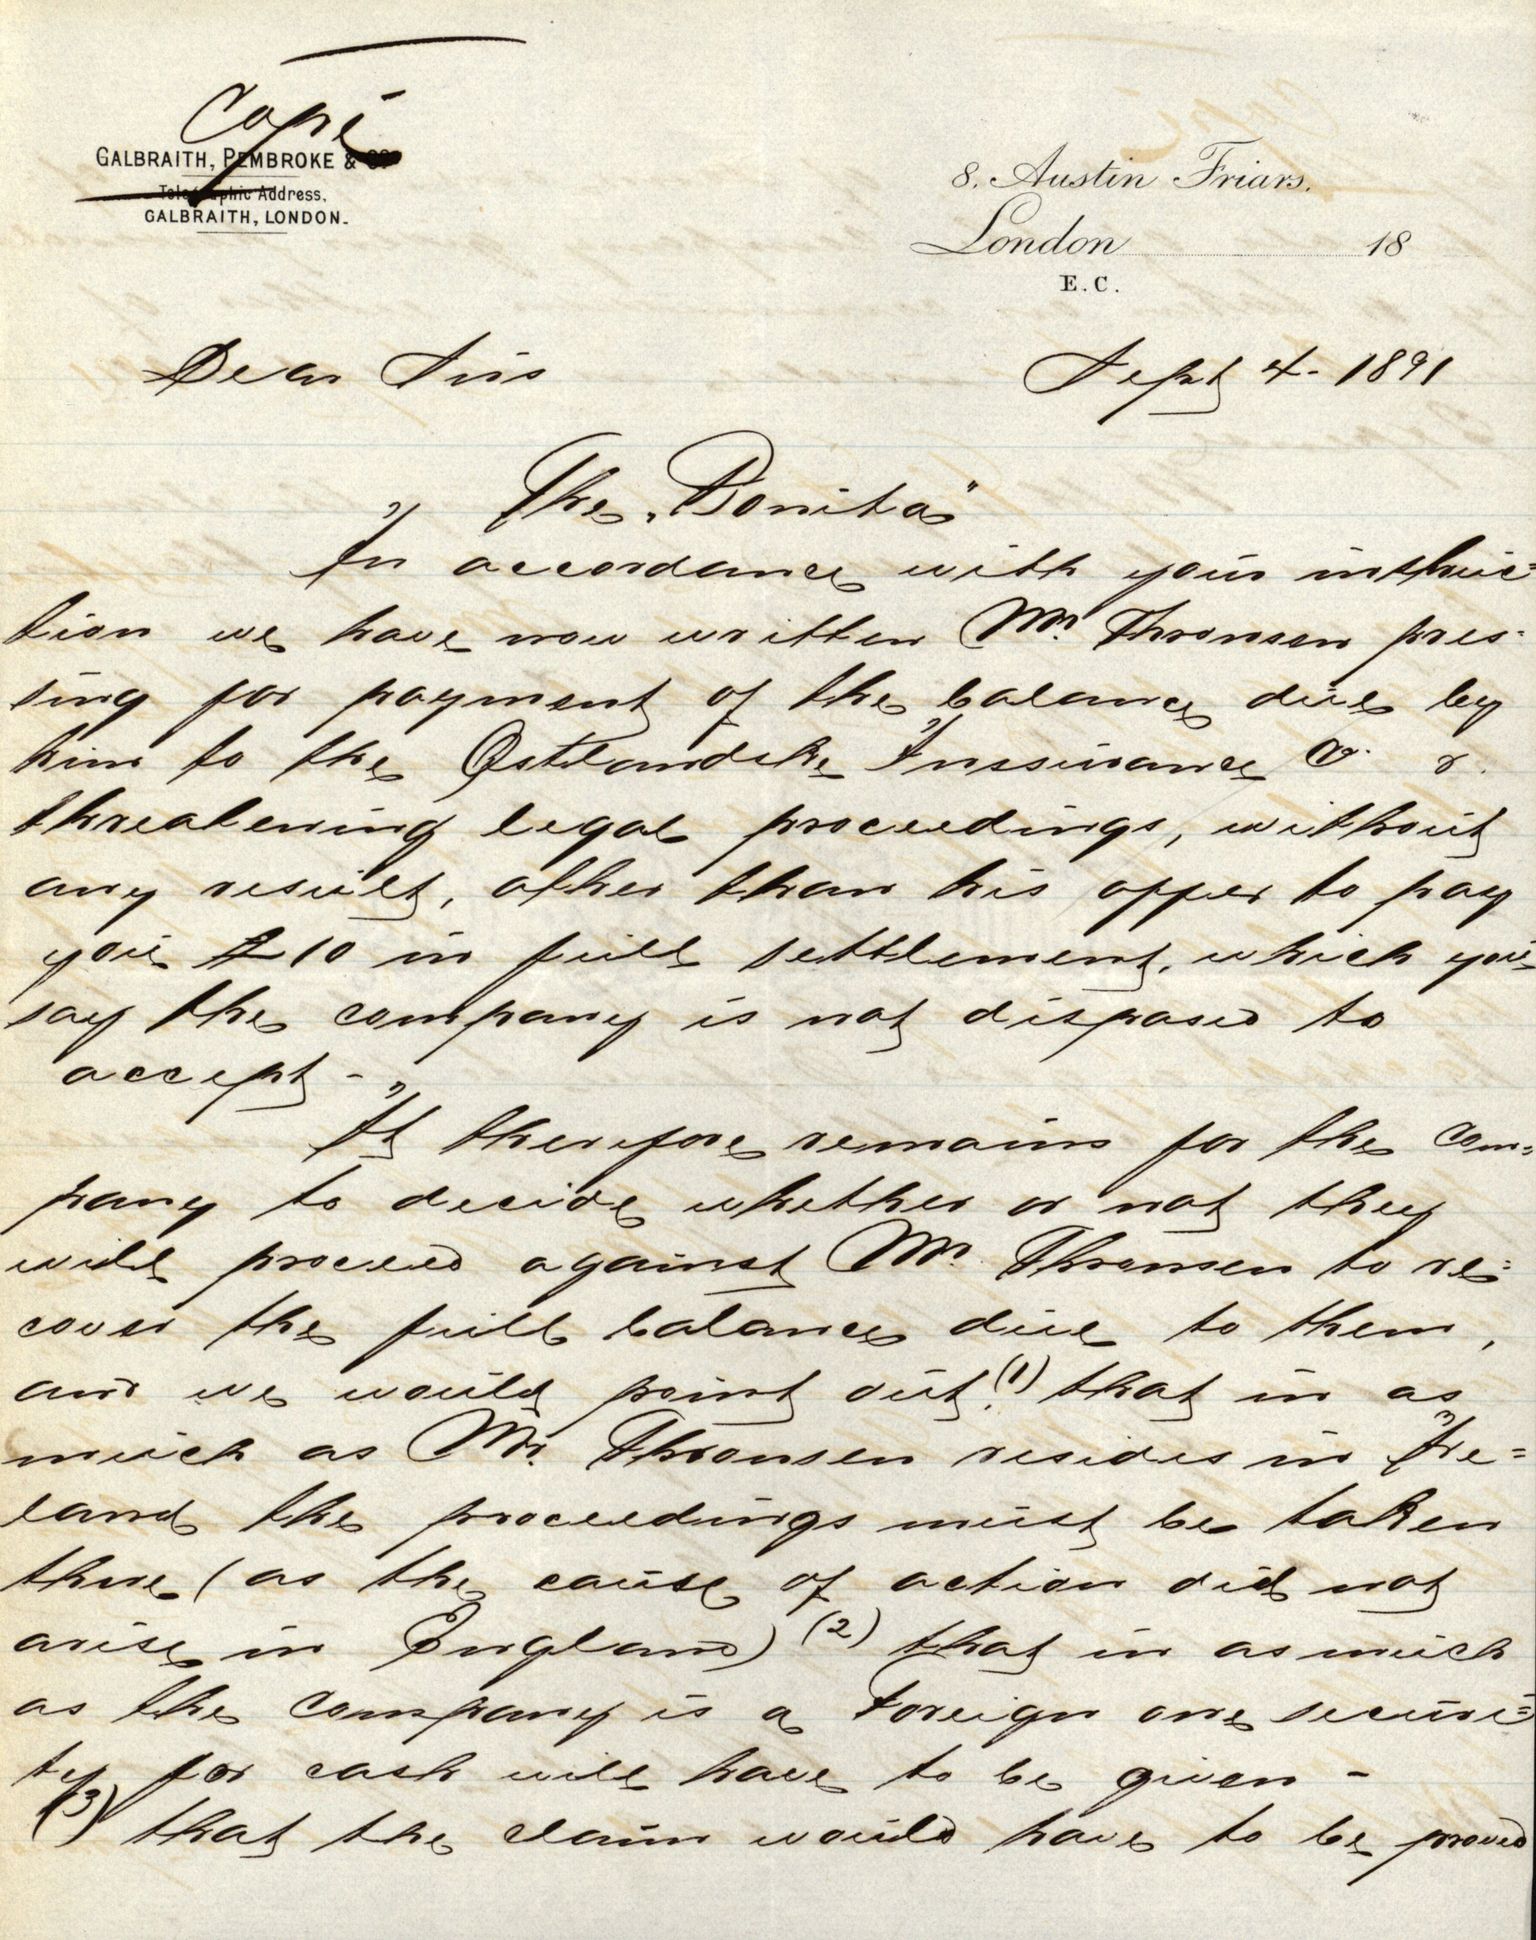 Copi
GALBRAITH, PEMBROKE & Co
Telegraphic Address,
GALBRAITH, LONDON.
8, Austin Friars,
London 18
E.C.
Dear Sirs
Sept 4 - 1891
The "Bonita"
In accordance with your instruc=
tion we have now written Mr Thronsen pres=
sing for payment of the balance due by
him to the Ostlandske Inssurance Co &
threatening legal proceedings, without
any result, other than his offer to pay
you £10 in full settlement, which you
say the company is not disposed to
accept -
It therefore remains for the com=
pany to decide whether or not they
will proceed against Mr. Thronsen to re=
cover the full balance due to them,
and we would point out, (1) that in as
much as Mr. Thronsen resides in Ire=
land the proceedings must be taken
there (as the cause of action did not
arise in England) (2) that in as much
as the company is a Foreign one securi=
ty for cash will have to be given -
(3) that the claim would have to be proved